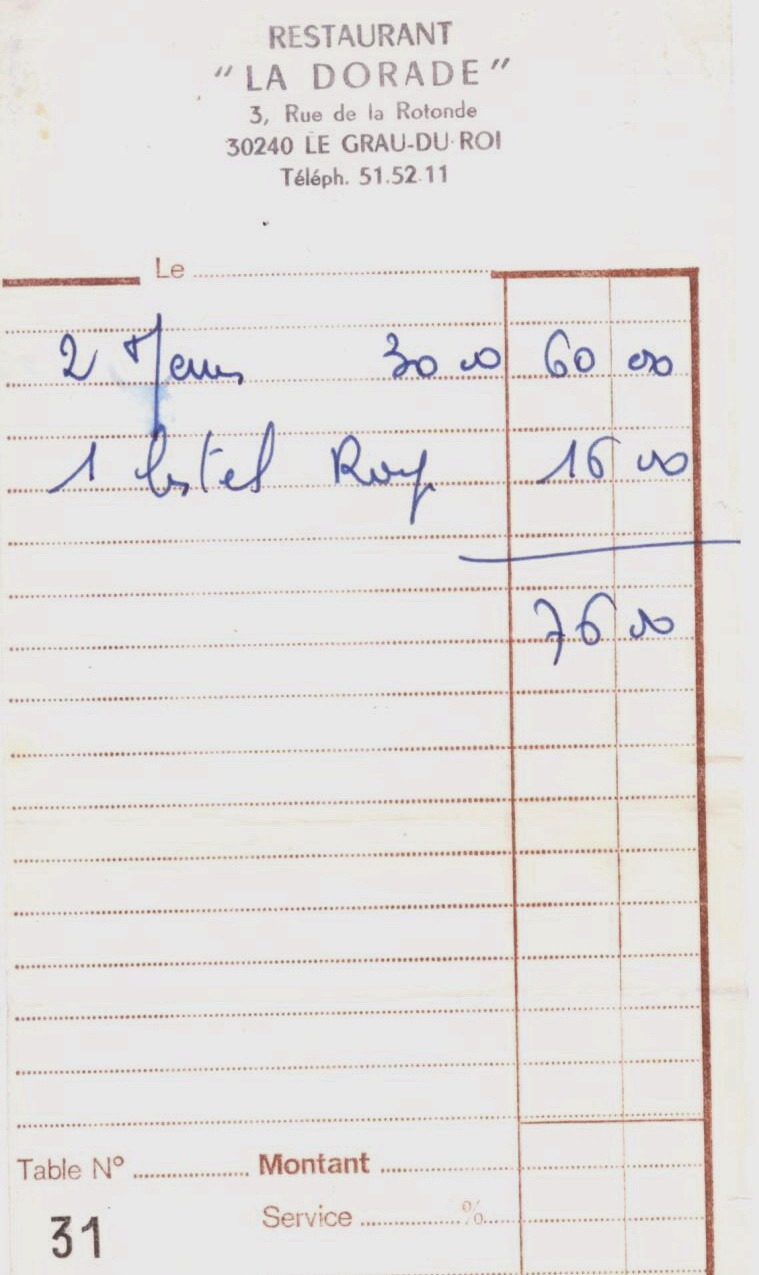 RESTAURANT
"LA DORADE"
3, Rue de la Rotonde
30240 LE GRAU-DU-ROI
Téléph. 51.52.11
Le
2 Menus 30 00 60 00
1 listel 16 00
76 00
Table N° Montant
Service %
31